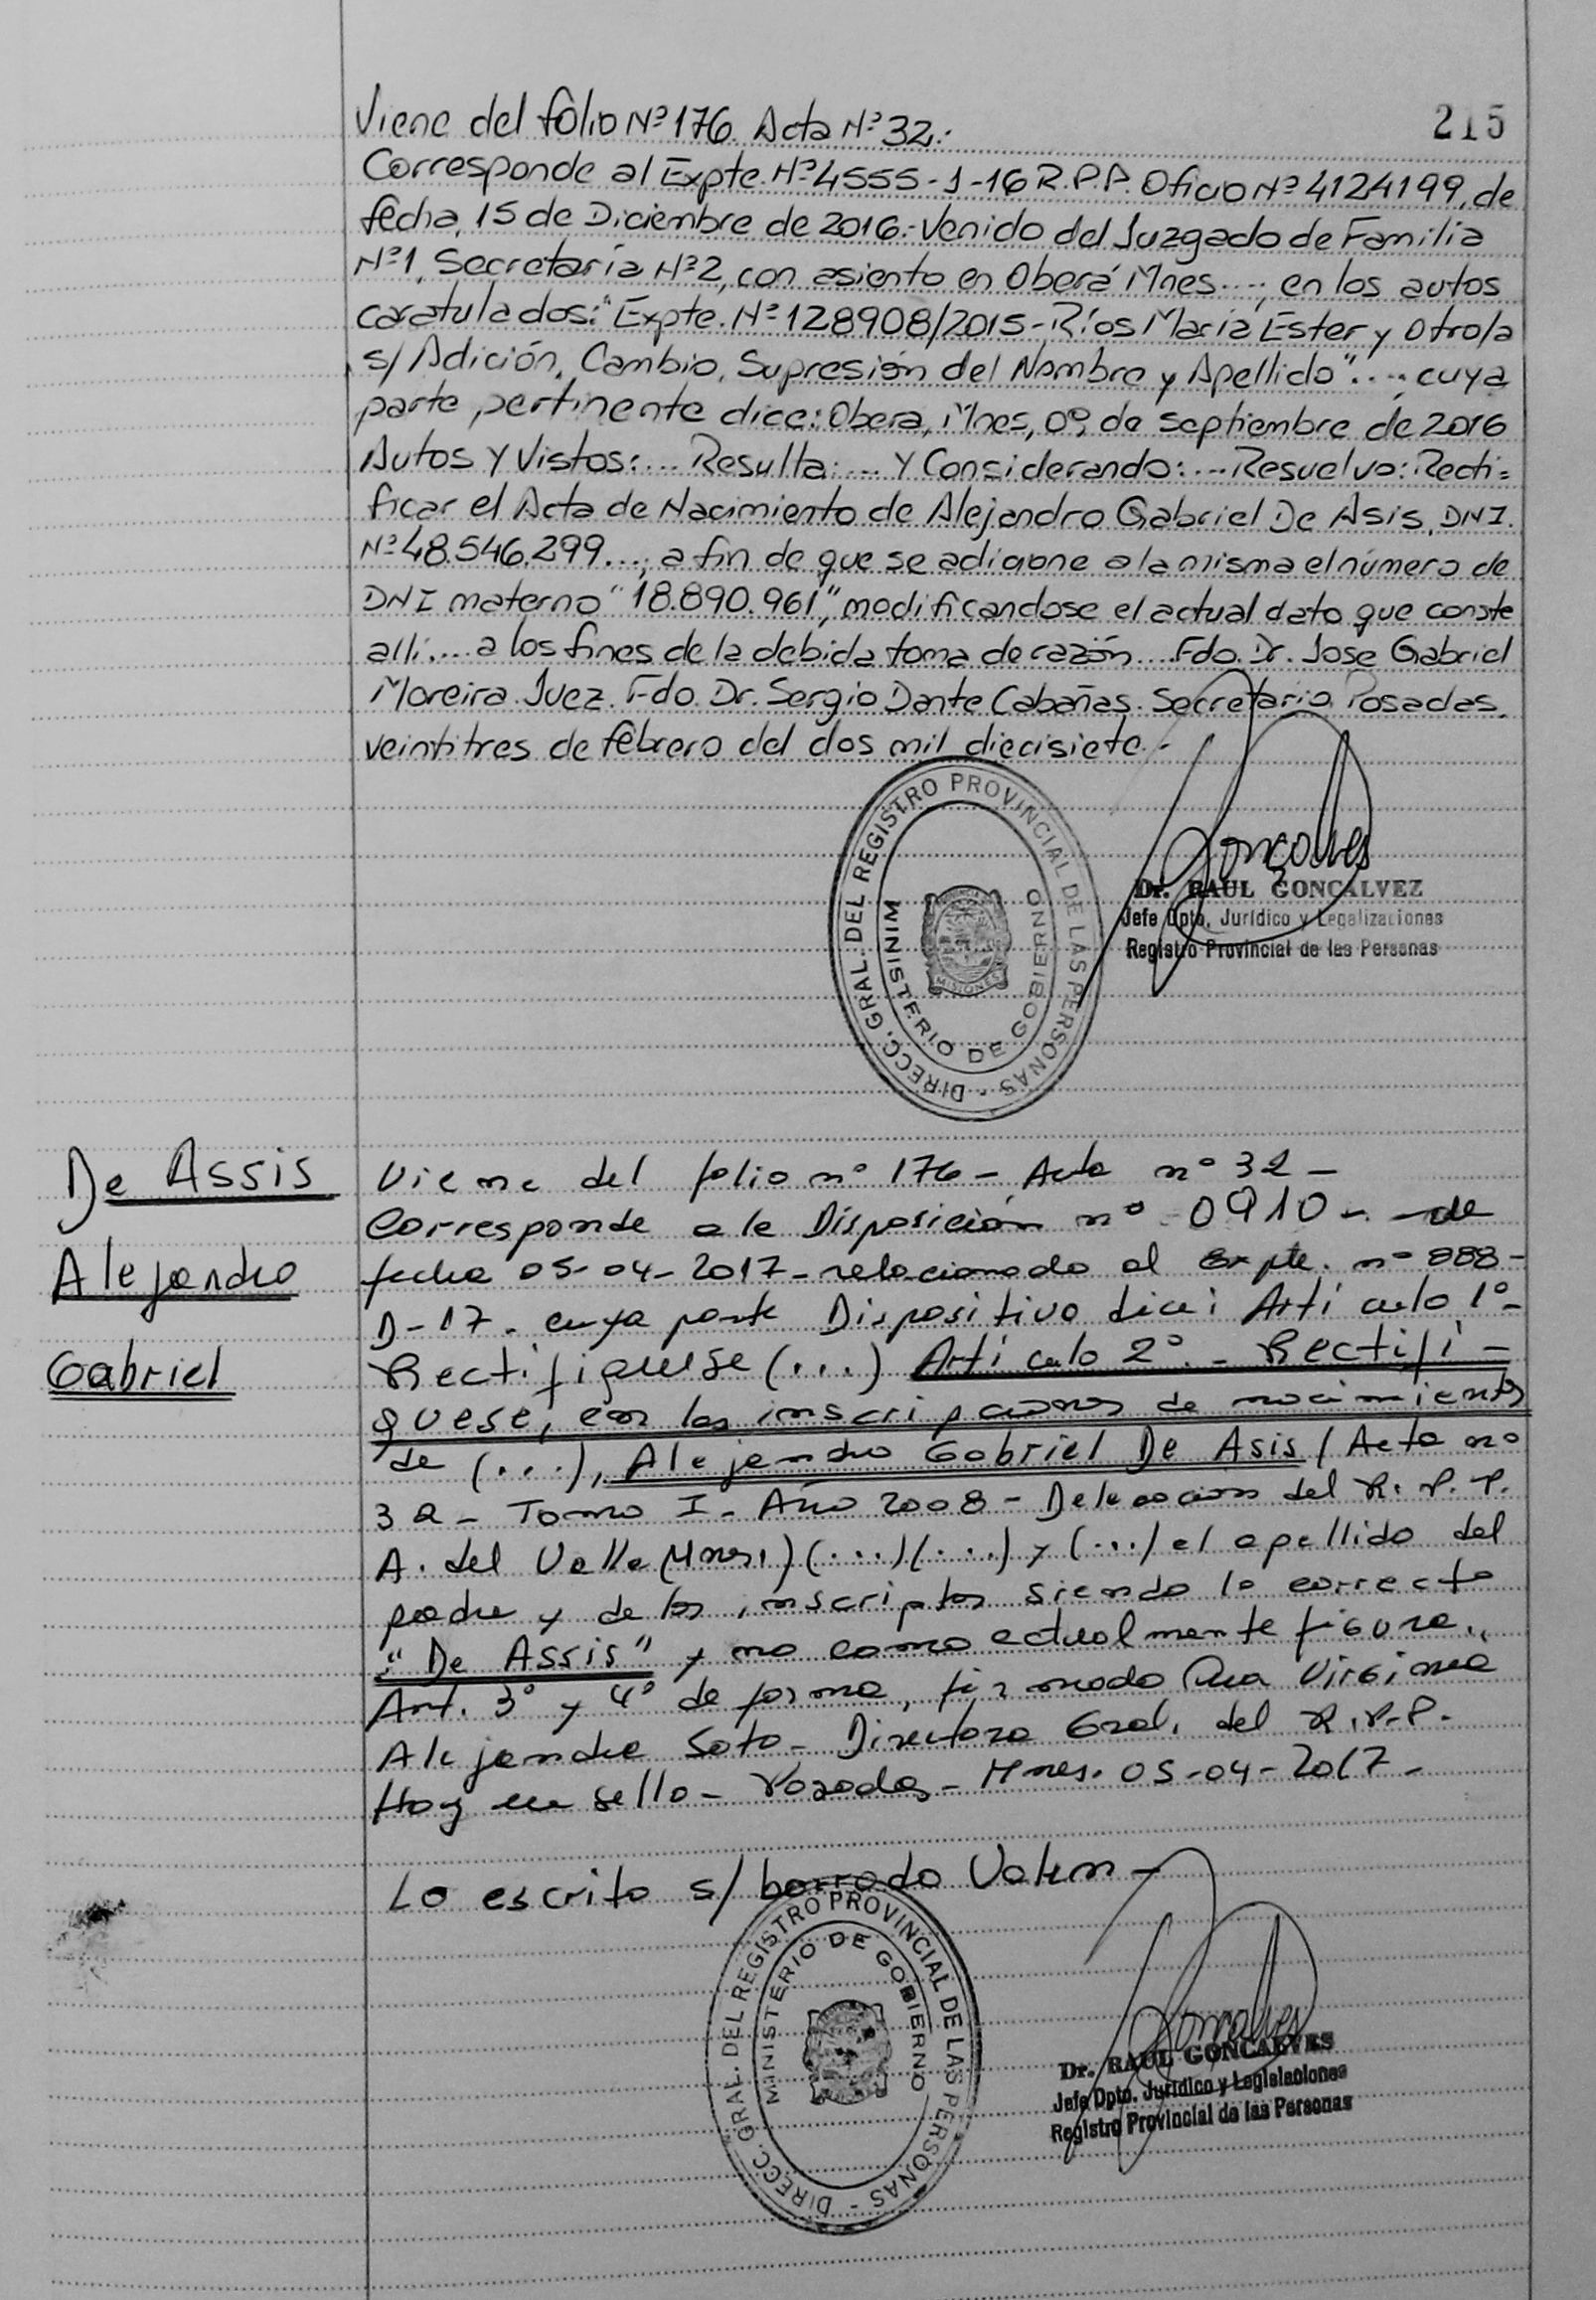 215
Viene del folio Nº 176. Acta Nº 32.-
Corresponde al Expte. Nº 4555-J-16 R.P.P. Oficio Nº 4124199, de
fecha, 15 de Diciembre de 2016.- Venido del Juzgado de Familia
Nº 1, Secretaría Nº 2, con asiento en Oberá Mnes...., en los autos
caratulados: "Expte. Nº 128908/2015 - Ríos María Ester y Otro/a
s/ Adición, Cambio, Supresión del Nombre y Apellido"...., cuya
parte pertinente dice: Obera, Mnes, 09, de septiembre de 2016
Autos y Vistos:... Resulta:... Y Considerando:... Resuelvo: Recti=
ficar el Acta de Nacimiento de Alejandro Gabriel De Asis, DNI.
Nº 48.546.299...., a fin de que se adicione a la misma el número de
DNI materno "18.890.961", modificandose el actual dato que conste
alli.... a los fines de la debida toma de razón.... Fdo. Dr. Jose Gabriel
Moreira. Juez. Fdo. Dr. Sergio Dante Cabañas. Secretario. Posadas,
veintitres de febrero del dos mil diecisiete.-
DIRECC. GRAL. DEL REGISTRO PROVINCIAL DE LAS PERSONAS -
MINISTERIO DE GOBIERNO
MISIONES
Dr. RAUL GONCALVEZ
Jefe Dpto. Jurídico y Legalizaciones
Registro Provincial de las Personas
De Assis
Alejandro
Gabriel
Viene del folio nº 176 - Acta nº 32 -
Corresponde a la Disposición nº 0910 - - de
fecha 05-04-2017 - relacionado al Expte. nº 888-
D-17. cuya parte Dispositiva dice: Artículo 1º-
Rectifiquese (...) Artículo 2º.- Rectifi-
quese, en las inscripciones de nacimiento
de (...), Alejandro Gabriel De Asis (Acta nº
32 - Tomo I - Año 2008 - Delegación del R. P. P.
A. del Valle (Mnes.) (...) (...) y (...) el apellido del
padre y de los inscriptos siendo lo correcto
"De Assis" y no como actualmente figura.,
Art. 3º y 4º de forma, firmado Ana Virginia
Alejandra Soto - Directora Gral. del R.P.P.
Hay un sello - Posadas - Mnes. 05-04-2017 -
Lo escrito s/ borrado Valen -
DIRECC. GRAL. DEL REGISTRO PROVINCIAL DE LAS PERSONAS -
MINISTERIO DE GOBIERNO
Dr. RAUL GONCALVES
Jefe Dpto. Jurídico y Legislaciones
Registro Provincial de las Personas